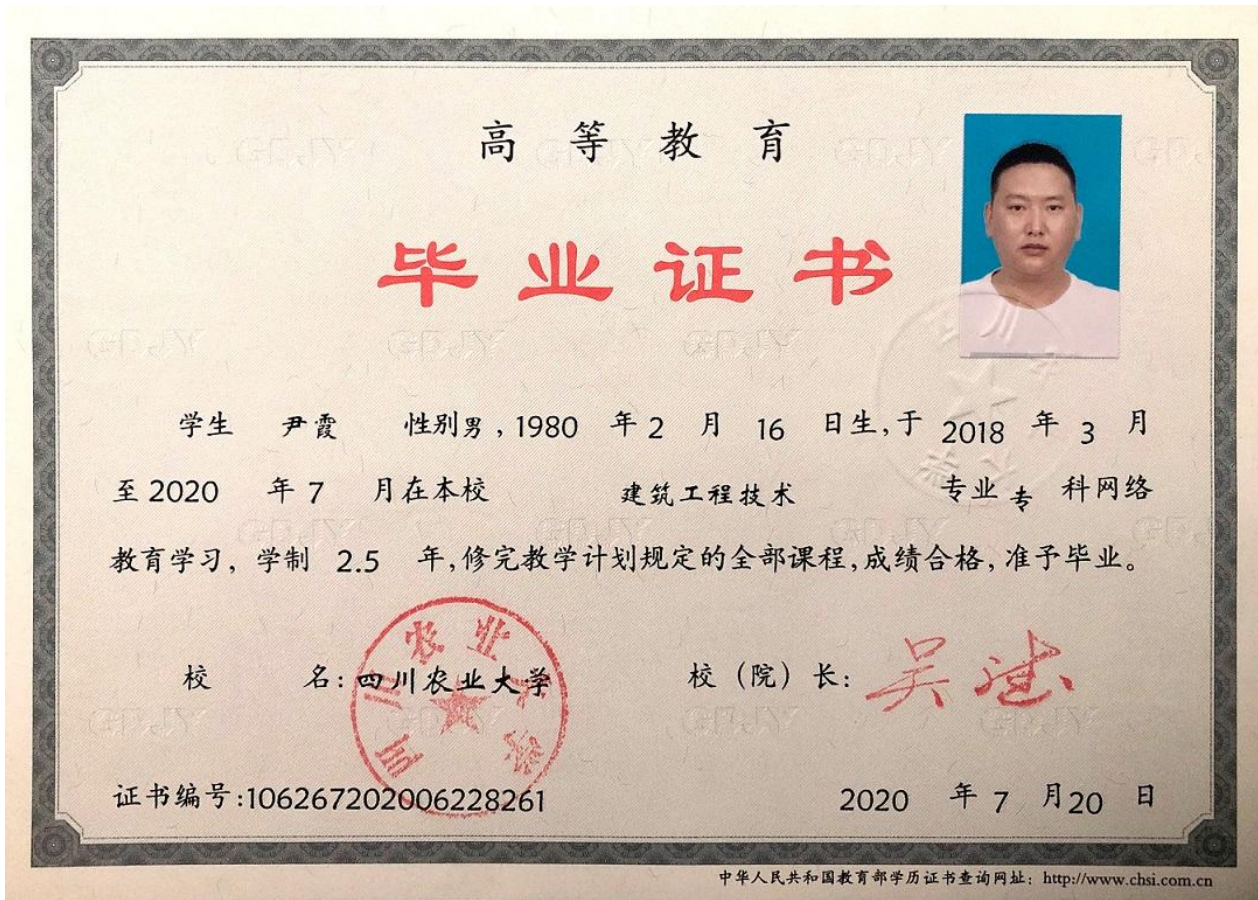 高等教育
毕业证书
学生 尹霞 性别男，1980 年 2 月 16 日生，于 2018 年 3 月
至 2020 年 7 月在本校 建筑工程技术 专业 专 科网络
教育学习，学制 2.5 年，修完教学计划规定的全部课程，成绩合格，准予毕业。
校 名：四川农业大学 校（院）长：
四川农业大学
证书编号:106267202006228261 2020 年 7 月 20 日
中华人民共和国教育部学历证书查询网址：http://www.chsi.com.cn